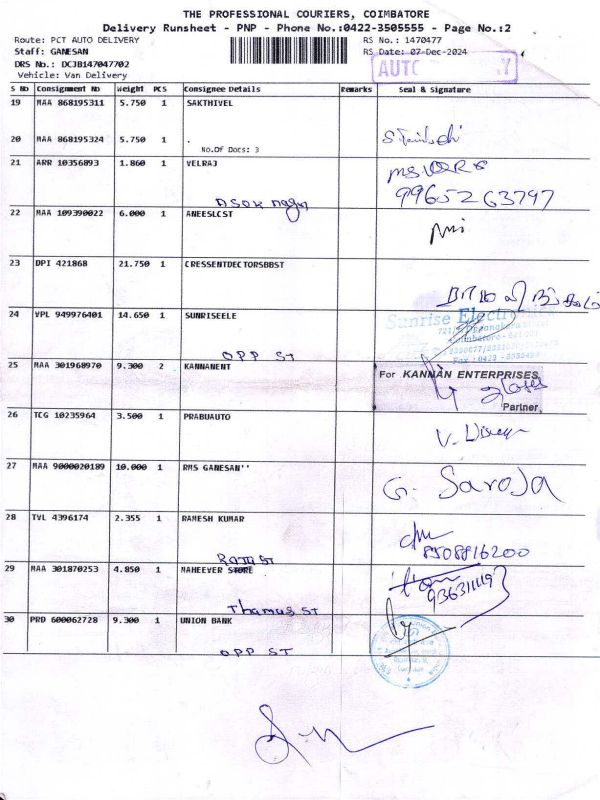 THE PROFESSIONAL COURIERS, COIMBATORE
Delivery Runsheet - PNP - Phone No.:0422-3505555 - Page No.:2
Route: PCT AUTO DELIVERY
RS No.: 1470477
Staff: GANESAN
RS Date: 07-Dec-2024
DRS No.: DCJB147047702
AUTO
Vehicle: Van Delivery
S No Consignment No Weight PCS Consignee Details Remarks Seal & Signature
19 MAA 868195311 5.750 1 SAKTHIVEL
20 MAA 868195324 5.750 1 .
No.Of Docs: 3
21 ARR 10356893 1.860 1 VELRAJ
99652 63797
ASOK nagar
22 MAA 109390022 6.000 1 ANEESLCST
23 DPI 421868 21.750 1 CRESSENTDECTORSBBST
24 VPL 949976401 14.650 1 SUNRISEELE
Sunrise Electronics
OPP ST
25 MAA 301968970 9.300 2 KANNANENT
For KANNAN ENTERPRISES,
Partner
26 TCG 10235964 3.500 1 PRABUAUTO
27 MAA 9000020189 10.000 1 RMS GANESAN''
G. Saroja
28 TVL 4396174 2.355 1 RAMESH KUMAR
8508816200
Raja ST
29 MAA 301870253 4.850 1 MAHEEVER STORE
936311119
Thamus ST
30 PRD 600062728 9.300 1 UNION BANK
OPP ST